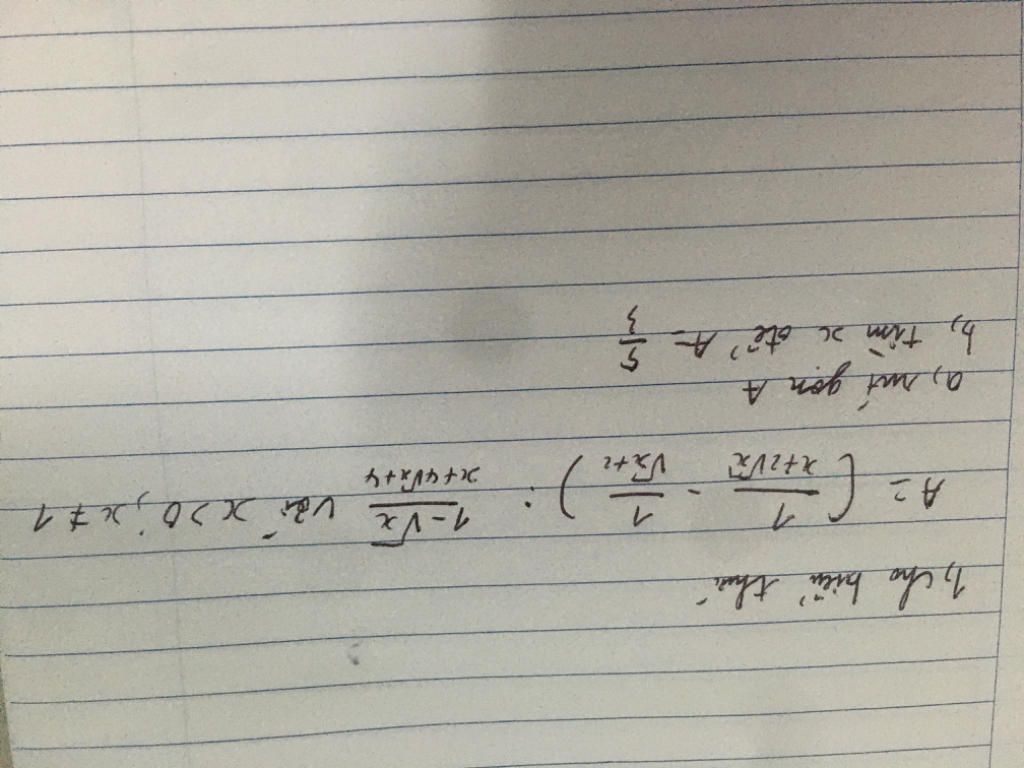 1, cho biểu thức
A = ( 1/(x+2√x) - 1/(√x+2) ) : (1-√x)/(x+4√x+4) với x>0, x≠1
a, rút gọn A
b, tìm x để A = 5/3